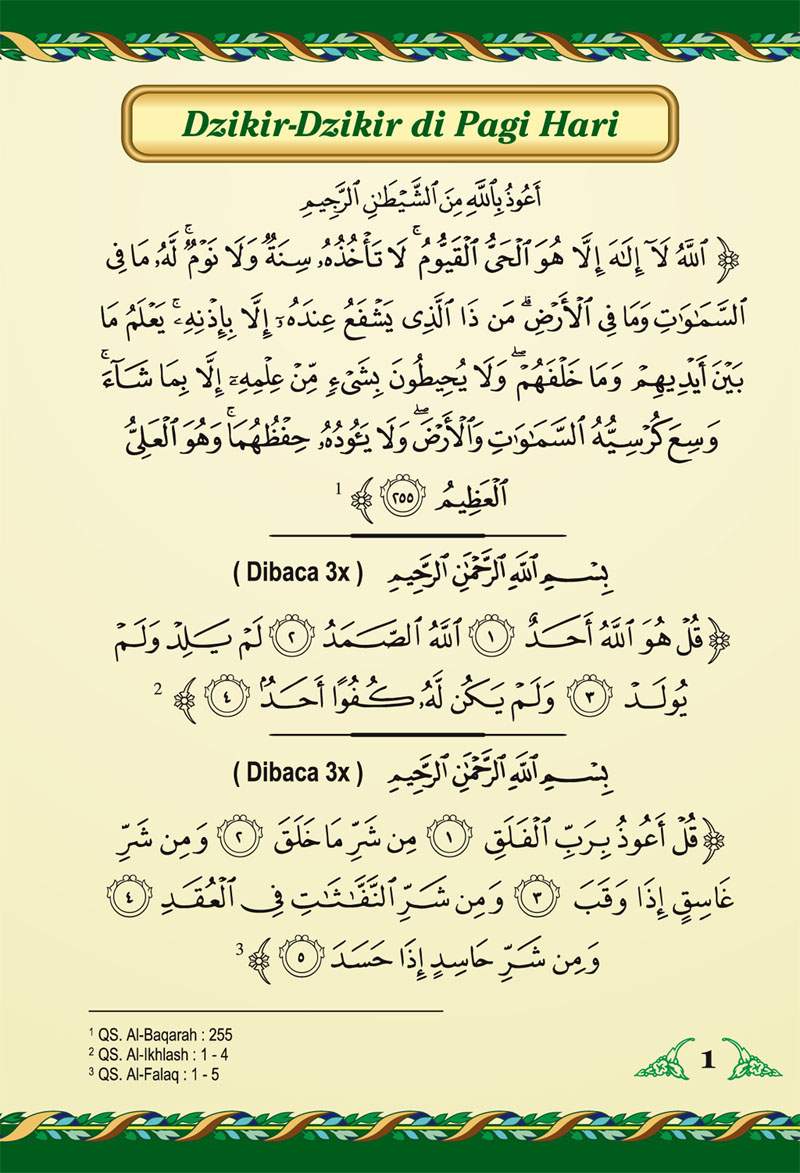 Dzikir-Dzikir di Pagi Hari
أَعُوذُ بِٱللَّهِ مِنَ ٱلشَّيْطَـٰنِ ٱلرَّجِيمِ
﴿ ٱللَّهُ لَآ إِلَـٰهَ إِلَّا هُوَ ٱلْحَىُّ ٱلْقَيُّومُ ۚ لَا تَأْخُذُهُۥ سِنَةٌ وَلَا نَوْمٌ ۚ لَّهُۥ مَا فِى
ٱلسَّمَـٰوَٰتِ وَمَا فِى ٱلْأَرْضِ ۗ مَن ذَا ٱلَّذِى يَشْفَعُ عِندَهُۥٓ إِلَّا بِإِذْنِهِۦ ۚ يَعْلَمُ مَا
بَيْنَ أَيْدِيهِمْ وَمَا خَلْفَهُمْ ۖ وَلَا يُحِيطُونَ بِشَىْءٍ مِّنْ عِلْمِهِۦٓ إِلَّا بِمَا شَآءَ ۚ
وَسِعَ كُرْسِيُّهُ ٱلسَّمَـٰوَٰتِ وَٱلْأَرْضَ ۖ وَلَا يَـُٔودُهُۥ حِفْظُهُمَا ۚ وَهُوَ ٱلْعَلِىُّ
ٱلْعَظِيمُ ٢٥٥ ﴾ 1
بِسْمِ ٱللَّهِ ٱلرَّحْمَـٰنِ ٱلرَّحِيمِ ( Dibaca 3x )
﴿ قُلْ هُوَ ٱللَّهُ أَحَدٌ ١ ٱللَّهُ ٱلصَّمَدُ ٢ لَمْ يَلِدْ وَلَمْ
يُولَدْ ٣ وَلَمْ يَكُن لَّهُۥ كُفُوًا أَحَدٌۢ ٤ ﴾ 2
بِسْمِ ٱللَّهِ ٱلرَّحْمَـٰنِ ٱلرَّحِيمِ ( Dibaca 3x )
﴿ قُلْ أَعُوذُ بِرَبِّ ٱلْفَلَقِ ١ مِن شَرِّ مَا خَلَقَ ٢ وَمِن شَرِّ
غَاسِقٍ إِذَا وَقَبَ ٣ وَمِن شَرِّ ٱلنَّفَّـٰثَـٰتِ فِى ٱلْعُقَدِ ٤
وَمِن شَرِّ حَاسِدٍ إِذَا حَسَدَ ٥ ﴾ 3
1 QS. Al-Baqarah : 255
2 QS. Al-Ikhlash : 1 - 4
3 QS. Al-Falaq : 1 - 5
1